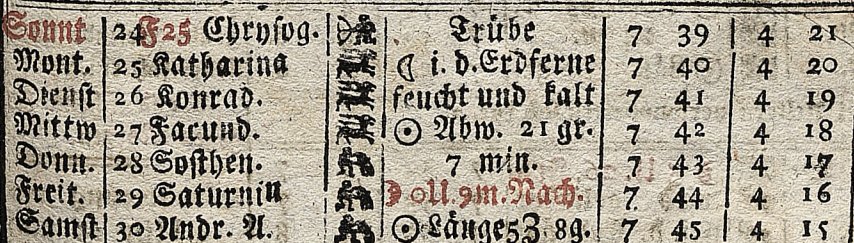 Sonnt 24 F25 Chrysog. Trübe 7 39 4 21
Mont. 25 Katharina ☾ i. d. Erdferne 7 40 4 20
Dienst 26 Konrad. feucht und kalt 7 41 4 19
Mittw 27 Facund. ☉ Abw. 21 gr. 7 42 4 18
Donn. 28 Sosthen. 7 min. 7 43 4 17
Freit. 29 Saturnin 9m. Nach. 7 44 4 16
Samst 30 Andr. A. ☉ Länge 5Z. 8g. 7 45 4 15